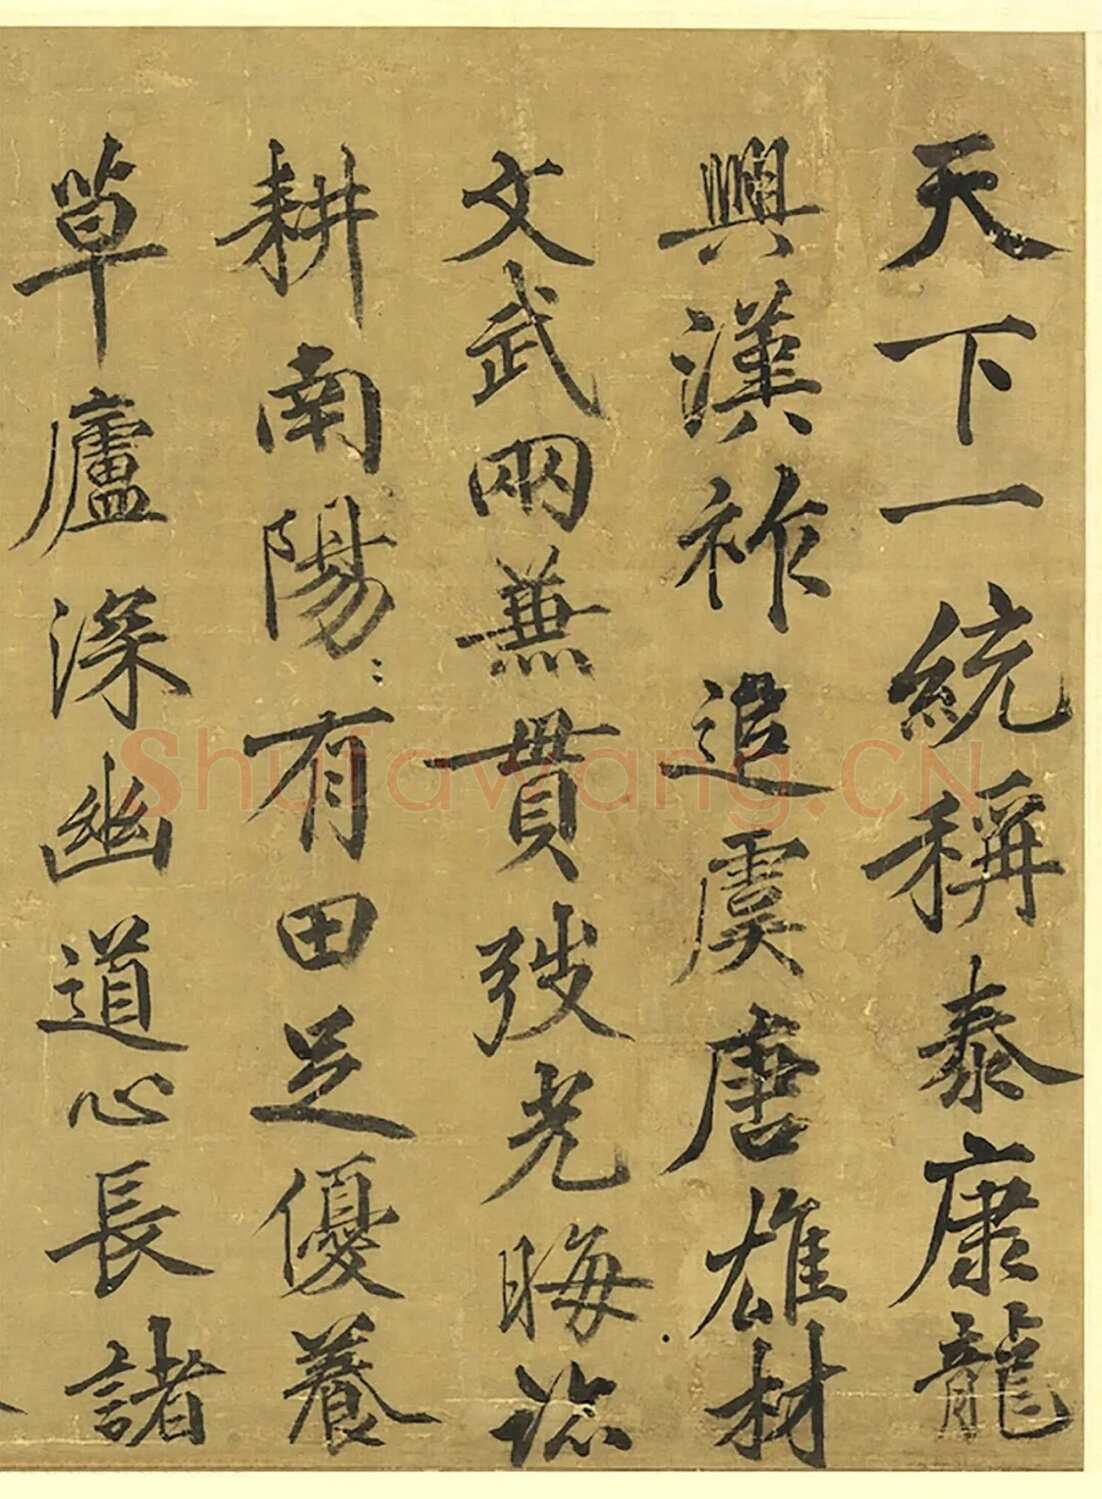 天下一統稱泰康龍
興漢祚追虞唐雄材
文武兩兼貫發光晦跡
耕南陽有田足優養
草廬深幽道心長諸
ShuFaWang.CN